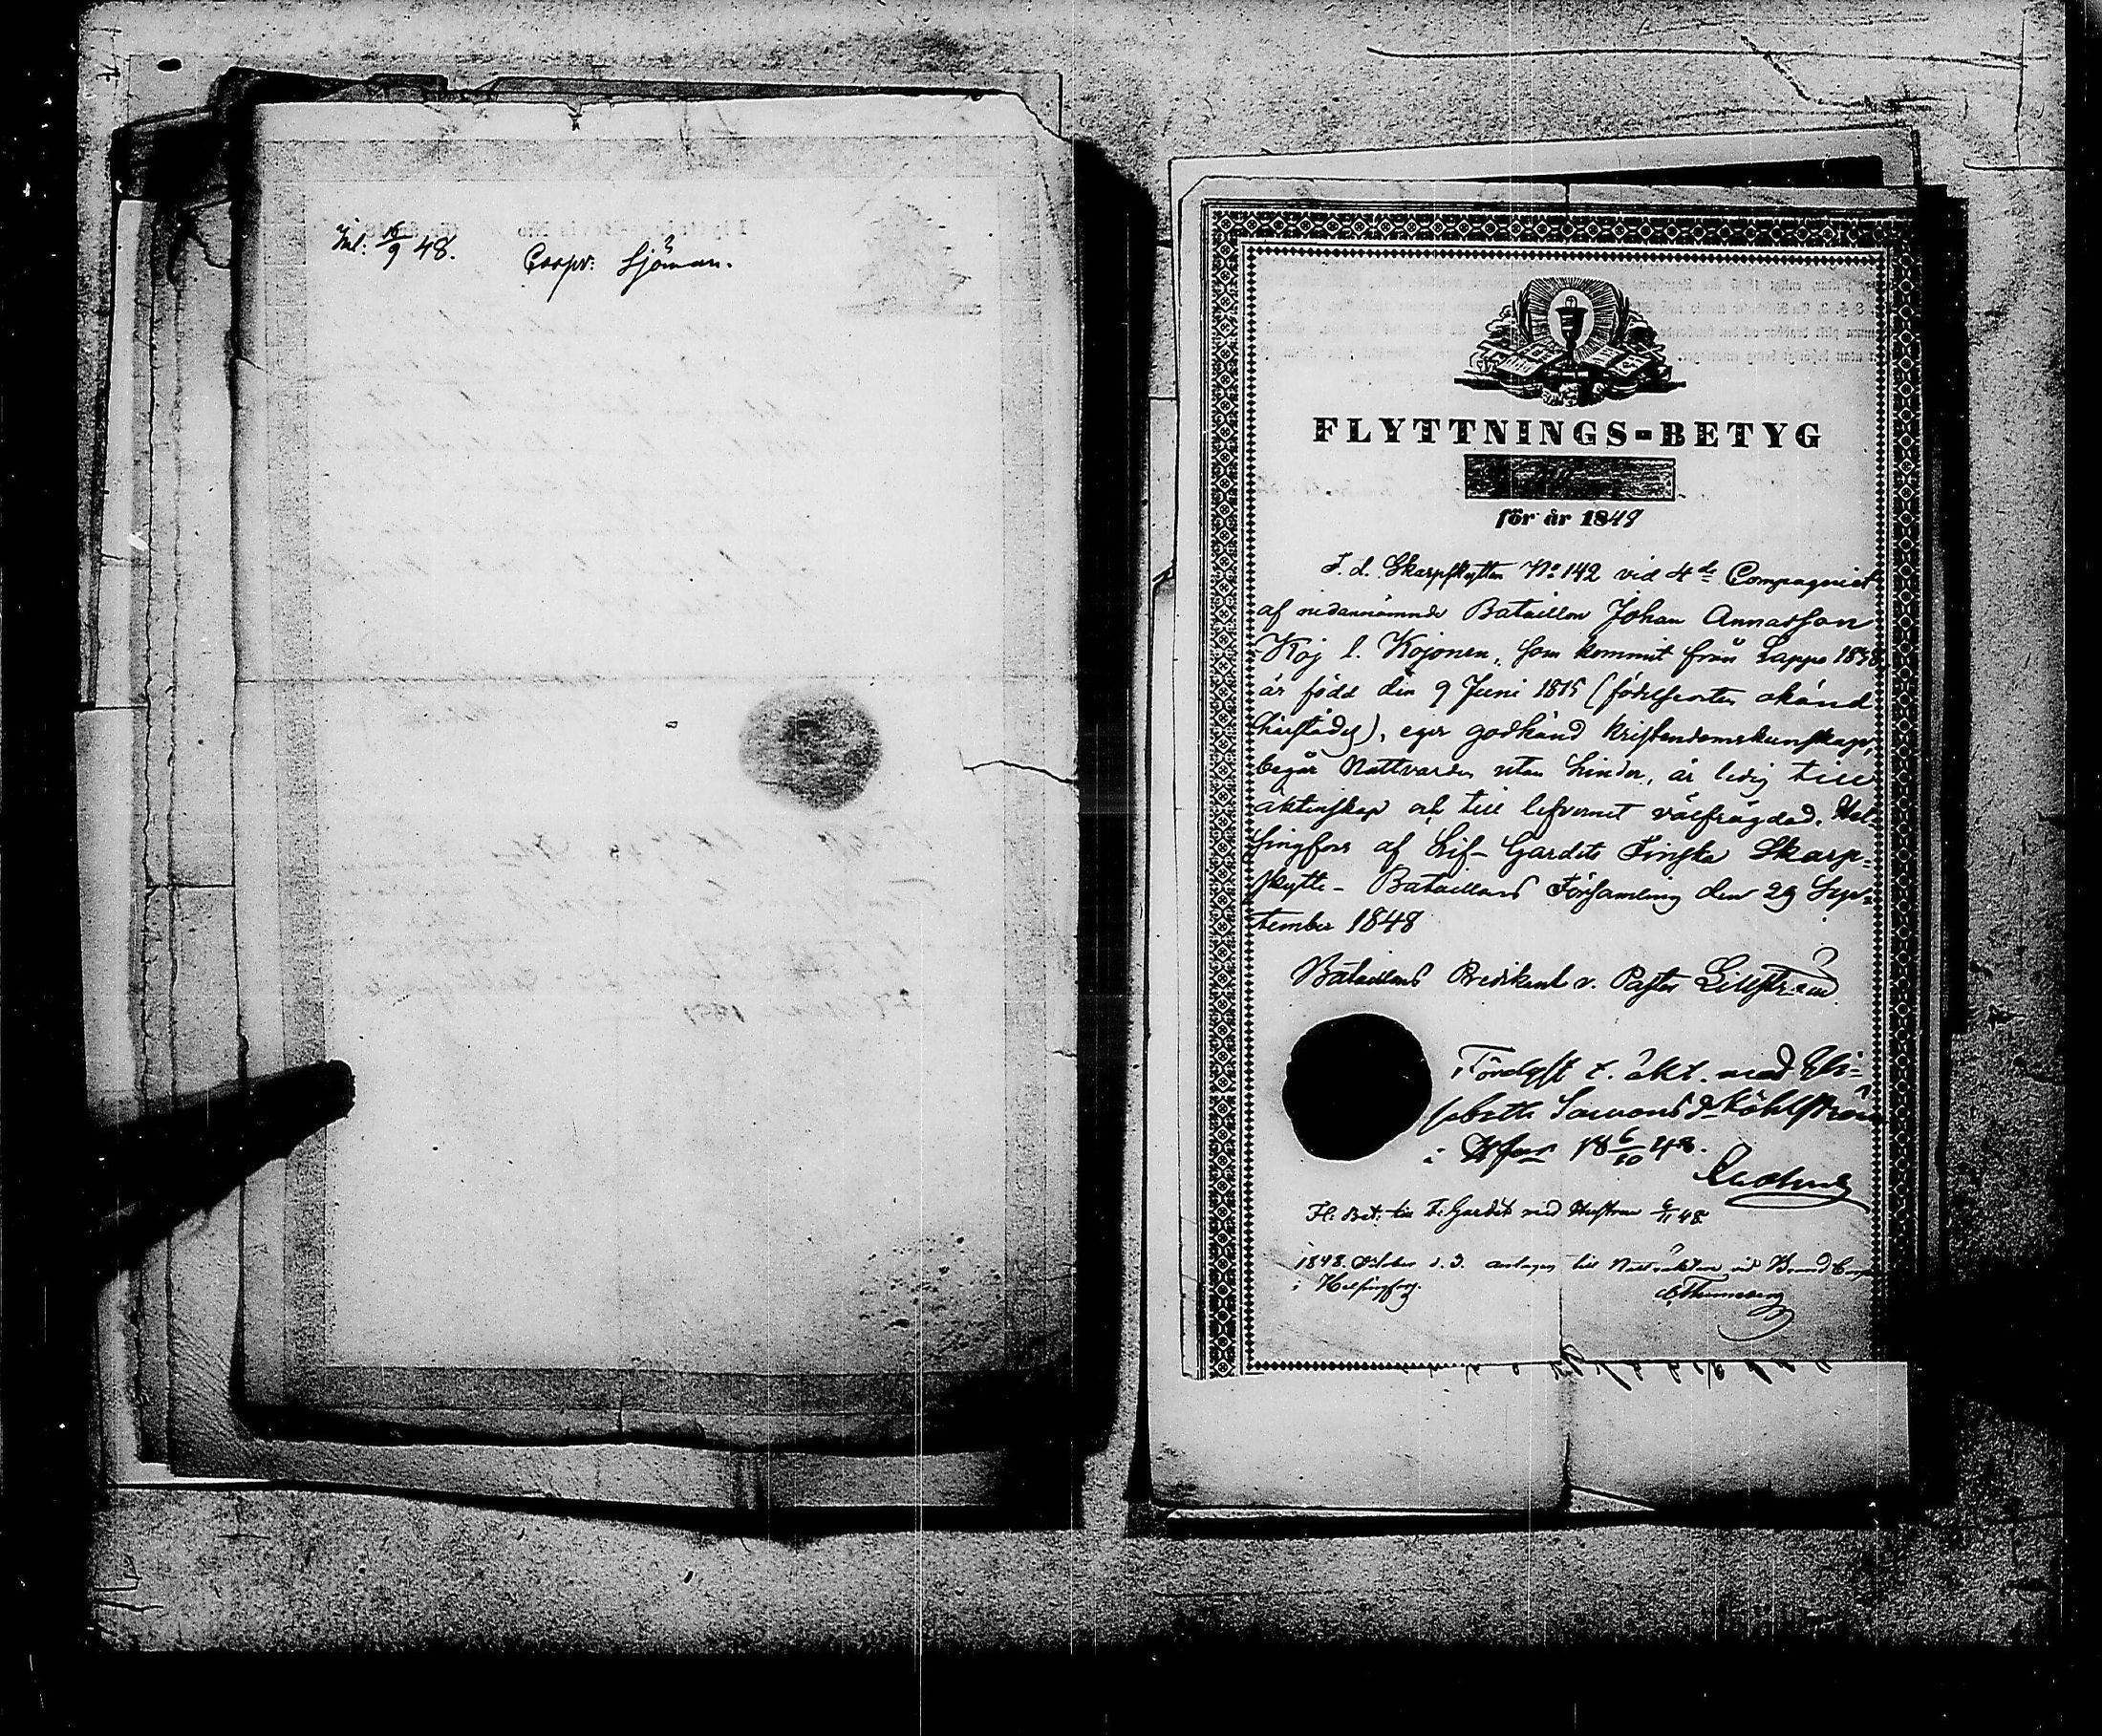 Inl. 15/9 48. Casper Sjöman.
FLYTTNINGS-BETYG
för år 1848
F. d. Skarpskytten No 142 vid 4de Compagniet
af nedannämnde Bataillon Johan Annasson
Koj l. Kojonen, som kommit från Lappo 1838
är född den 9 Juni 1815 (födelseorten okänd
härstädes), eger godkänd kristendomskunskap,
begår Nattvarden utan hinder, är ledig till
äktenskap och till lefvernet välfrägdad. Hel-
singfors af Lif-Gardets Finska Skarp-
skytte-Bataillons Församling den 29 Sep-
tember 1848
Bataillons Predikant v. Pastor Lillstrand
Fördlyst t. äkt. med Eli-
sabeth Simonsdr Köhlström
i Hfors 18 6/10 48.
Fl. Bet. till F. Gardet med Hustrun 6/11 48
1848 October d. 3. antagen till Nattväktare vid Brand Corps
i Helsingfors.